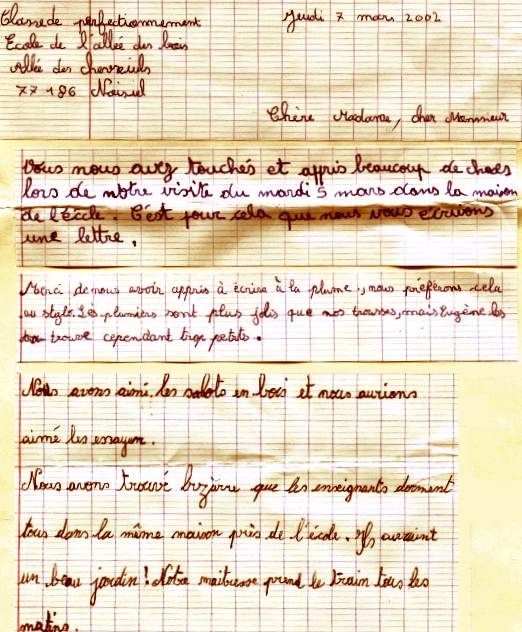 Classe de perfectionnement
Jeudi 7 mars 2002
Ecole de l'allée des bois
Allée des chevreuils
77186 Noisiel
Chère Madame, cher Monsieur
Vous nous avez touchés et appris beaucoup de choses
lors de notre visite du mardi 5 mars dans la maison
de l'école. C'est pour cela que nous vous écrivons
une lettre.
Merci de nous avoir appris à écrire à la plume, nous préférons cela
au stylo. Les plumiers sont plus jolis que nos trousses, mais Eugène les
trouve cependant trop petits.
Nous avons aimé les sabots en bois et nous aurions
aimé les essayer.
Nous avons trouvé bizarre que les enseignants dorment
tous dans la même maison près de l'école. Ils avaient
un beau jardin! Notre maitresse prend le train tous les
matins.